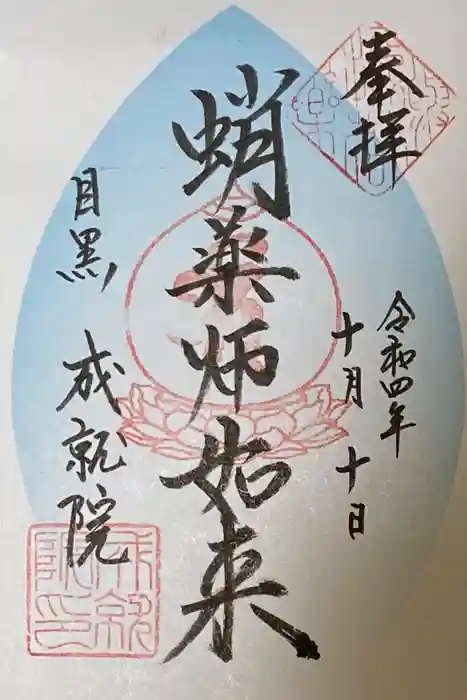 奉拝
令和四年
十月十日
蛸薬師如来
目黒 成就院